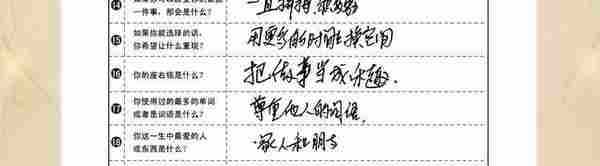 一件事，那会是什么？
⑮ 如果你能选择的话，
你希望让什么重现？
用更多的时间换空间
⑯ 你的座右铭是什么？
把做事当成乐趣.
⑰ 你使用过的最多的单词
或者是词语是什么？
尊重他人的词语.
⑱ 你这一生中最爱的人
或东西是什么？
家人和朋友